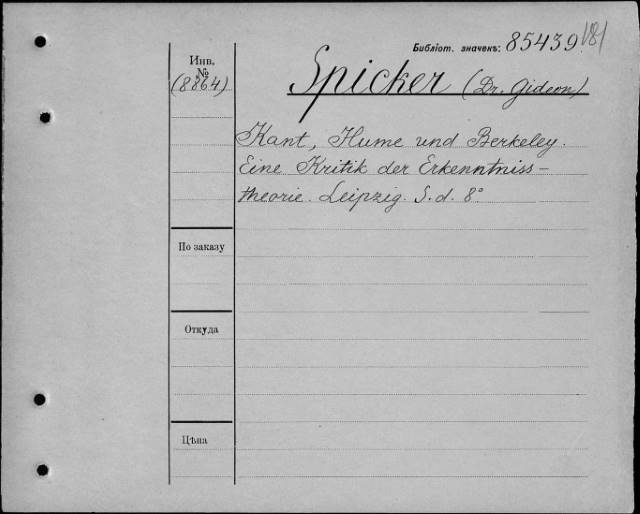 Библіот. значекъ: 85439 181
Инв.
№
(8864)
Spicker (Dr. Gideon)
Kant, Hume und Berkeley.
Eine Kritik der Erkenntniss-
theorie. Leipzig. S. d. 8°
По заказу
Откуда
Цѣна